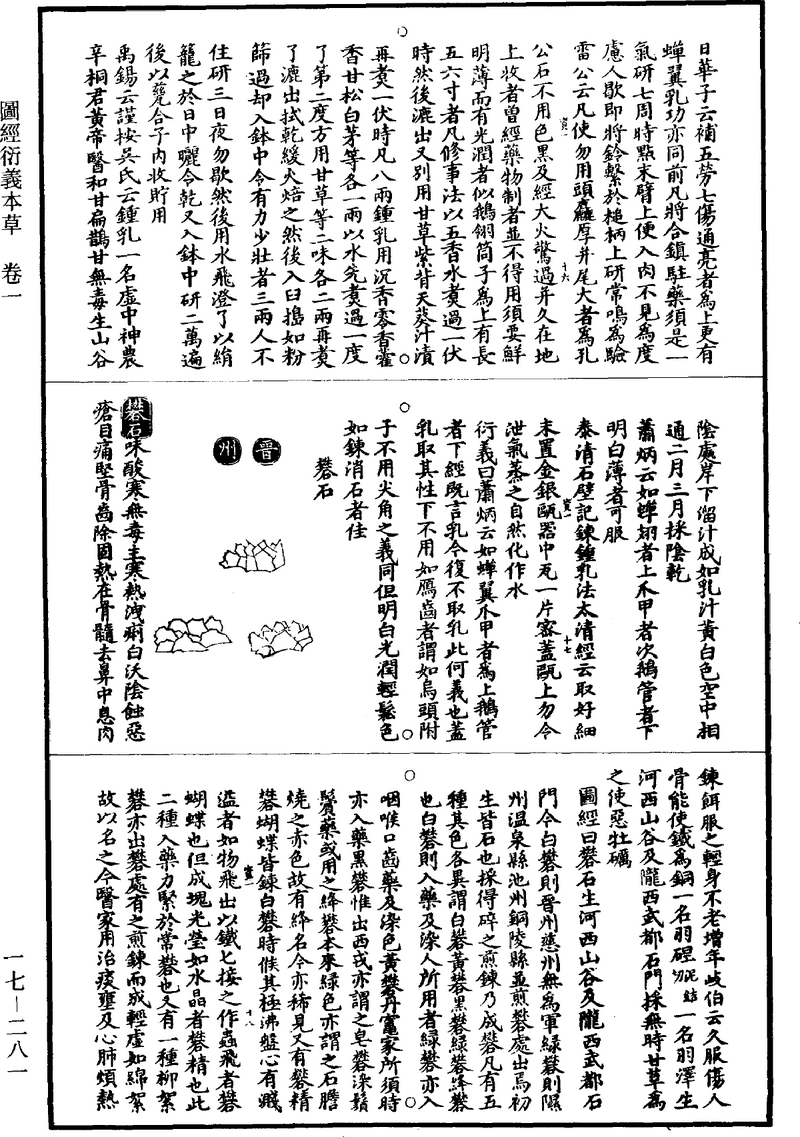 圖經衍義本草 卷一
日華子云補五勞七傷通亮者為上更有
蟬翼乳功亦同前凡將合鎮駐藥須是一
氣研七周時點末臂上便入肉不見為度
慮人歇即將鈴繫於槌柄上研常鳴為驗
雷公云凡使勿用頭麤厚并尾大者為孔
公石不用色黑及經大火驚過并久在地
上收者曾經藥物制者並不得用須要鮮
明薄而有光潤者似鵝翎筒子為上有長
五六寸者凡修事法以五香水煑過一伏
時然後漉出又別用甘草紫背天葵汁漬
再煑一伏時凡八兩鍾乳用沉香零香藿
香甘松白茅等各一兩以水先煑過一度
了第二度方用甘草等二味各二兩再煑
了漉出拭乾緩火焙之然後入臼搗如粉
篩過却入鉢中令有力少壯者三兩人不
住研三日夜勿歇然後用水飛澄了以絹
籠之於日中曬令乾又入鉢中研二萬遍
後以甆合子內收貯用
禹錫云謹按吳氏云鍾乳一名虛中神農
辛桐君黃帝醫和甘扁鵲甘無毒生山谷
陰處岸下溜汁成如乳汁黃白色空中相
通二月三月採陰乾
蕭炳云如蟬翅者上爪甲者次鵝管者下
明白薄者可服
泰清石壁記鍊鍾乳法太清經云取好細
末置金銀甌器中瓦一片密蓋甌上勿令
泄氣蒸之自然化作水
衍義曰蕭炳云如蟬翼爪甲者為上鵝管
者下經既言乳今復不取乳此何義也蓋
乳取其性下不用如鴈齒者謂如烏頭附
子不用尖角之義同但明白光潤輕鬆色
如鍊消石者佳
礬石
晉
州
礬石味酸寒無毒主寒熱洩痢白沃陰蝕惡
瘡目痛堅骨齒除固熱在骨髓去鼻中息肉
鍊餌服之輕身不老增年岐伯云久服傷人
骨能使鐵為銅一名羽䂖一名羽澤生
河西山谷及隴西武都石門採無時甘草為
之使惡牡礪
圖經曰礬石生河西山谷及隴西武都石
門今白礬則晉州慈州無為軍綠礬則隰
州溫泉縣池州銅陵縣並煎礬處出焉初
生皆石也採得碎之煎鍊乃成礬凡有五
種其色各異謂白礬黃礬黑礬綠礬絳礬
也白礬則入藥及染人所用者綠礬亦入
咽喉口齒藥及染色黃礬丹竈家所須時
亦入藥黑礬惟出西戎亦謂之皂礬染鬚
鬢藥或用之絳礬本來綠色亦謂之石膽
燒之赤色故有絳名今亦稀見又有礬精
礬蝴蝶皆鍊白礬時候其極沸盤心有濺
溢者如物飛出以鐵匕接之作蟲飛者礬
蝴蝶也但成塊光瑩如水晶者礬精也此
二種入藥力緊於常礬也又有一種柳絮
礬亦出礬處有之煎鍊而成輕虛如綿絮
故以名之今醫家用治痰壅及心肺煩熱
一七—二八一